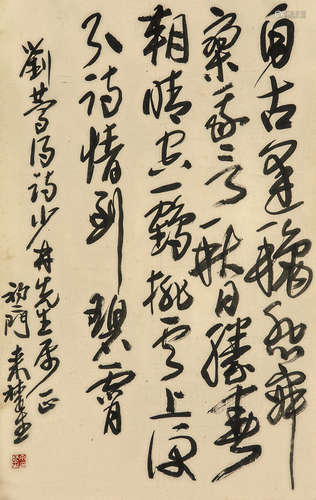 自古逢穐悲寂
寥我言秋日勝春
朝晴空一鶴排雲上便
引詩情到碧霄
劉夢得詩少井先生屬正
来楚生